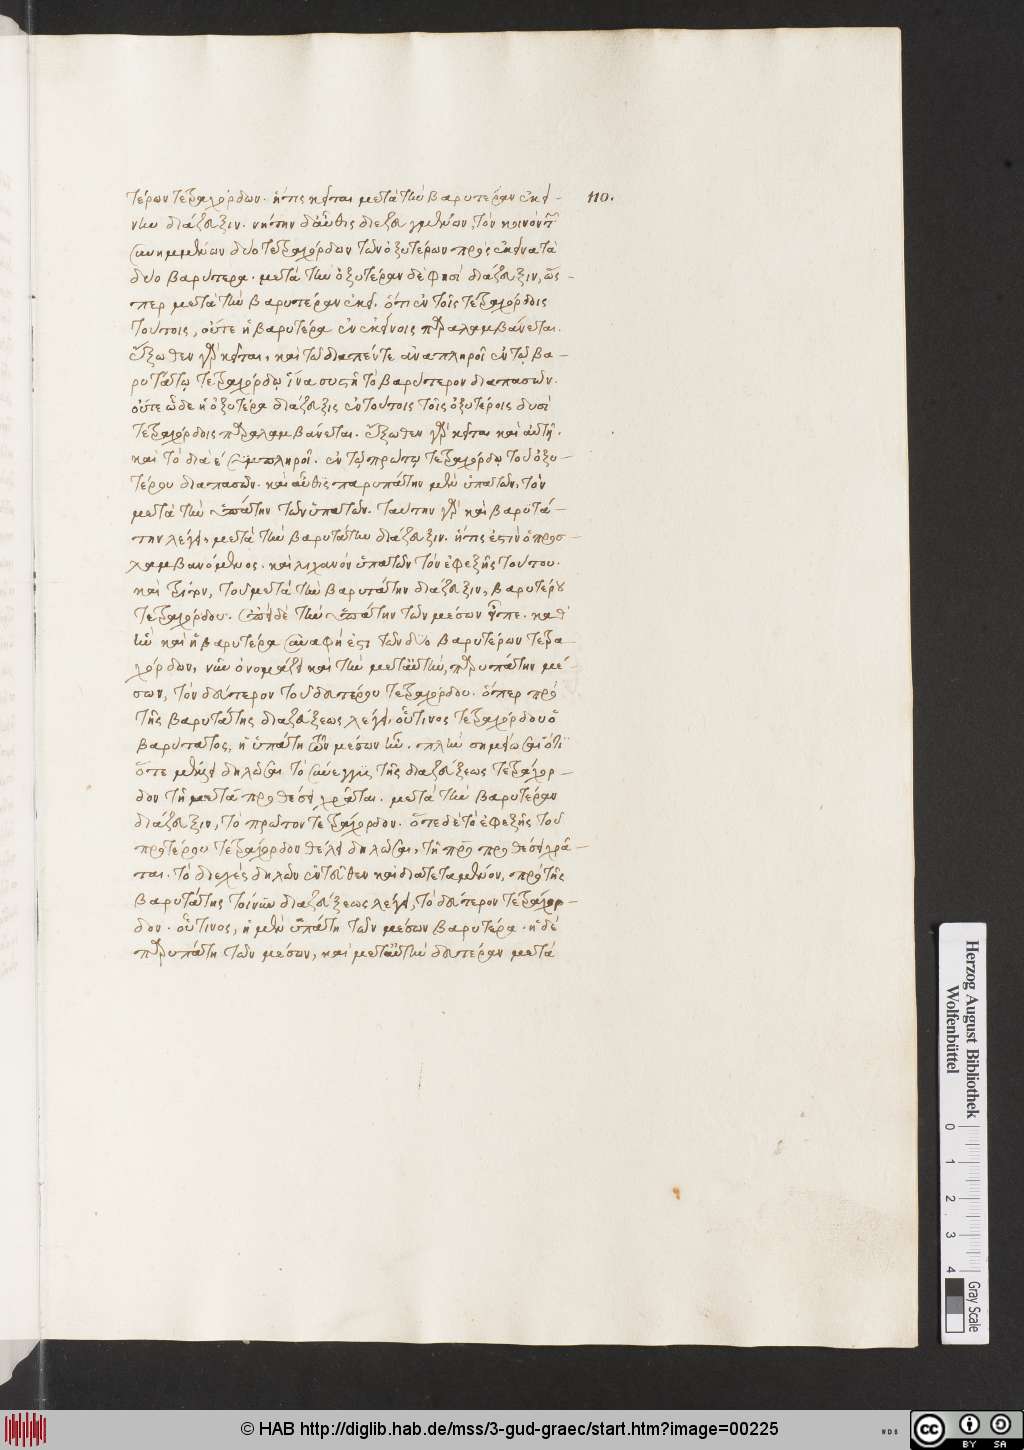 τέρων τετραχόρδων. ἥτις κεῖται μετὰ τὴν βαρυτέραν ἐκεί- 110.
νην διάζευξιν. νήτην δ' αὖθις διεζευγμένων, τὸν κοινὸν τῶν
συνημμένων δύο τετραχόρδων τῶν ὀξυτέρων πρὸς ἐκεῖνα τὰ
δύο βαρύτερα. μετὰ τὴν ὀξυτέραν δέ φησι διάζευξιν, ὥσ-
περ μετὰ τὴν βαρυτέραν ἐκεῖ. ὅτι ἐν τοῖς τετραχόρδοις
τούτοις, οὔτε ἡ βαρυτέρα ἐν ἐκείνοις παραλαμβάνεται.
ἔξωθεν γὰρ κεῖται, καὶ τὸ διαπέντε ἀναπληροῖ ἐν τῷ βα-
ρυτάτῳ τετραχόρδῳ ἵνα συστῇ τὸ βαρύτερον διαπασῶν.
οὔτε ὧδε ἡ ὀξυτέρα διάζευξις ἐν τούτοις τοῖς ὀξυτέροις δυσὶ
τετραχόρδοις παραλαμβάνεται. ἔξωθεν γὰρ κεῖται καὶ αὐτή.
καὶ τὸ διὰ ε συμπληροῖ. ἐν τῷ πρώτῳ τετραχόρδῳ τοῦ ὀξυ-
τέρου διαπασῶν. καὶ αὖθις παρυπάτην μὲν ὑπατῶν, τὸν
μετὰ τὴν ὑπάτην τῶν ὑπατῶν. ταύτην γὰρ καὶ βαρυτά-
την λέγει, μετὰ τὴν βαρυτάτην διάζευξιν. ἥτις ἐστὶν ὁ προσ-
λαμβανόμενος. καὶ λιχανὸν ὑπατῶν τὸν ἐφεξῆς τούτου.
καὶ τρίτον, τοῦ μετὰ τὴν βαρυτάτην διάζευξιν, βαρυτέρου
τετραχόρδου. ἐπεὶ δὲ τὴν ὑπάτην τῶν μέσων εἶπε. καθ'
ἣν καὶ ἡ βαρυτέρα συναφή ἐστι τῶν δύο βαρυτέρων τετρα-
χόρδων, νῦν ὀνομάζει καὶ τὴν μετ' αὐτὴν, παρυπάτην μέ-
σων, τὸν δεύτερον τοῦ δευτέρου τετραχόρδου. ὅπερ πρὸ
τῆς βαρυτάτης διαζεύξεως λέγει, οὗτινος τετραχόρδου ὁ
βαρύτατος, ἡ ὑπάτη τῶν μέσων ἦν. πλὴν σημείωσαι ὅτι
ὅτε μὲν δηλῶσαι τὸ συνεγγὺς τῆς διαζεύξεως τετράχορ-
δον τῇ μετὰ προθέσει χρᾶται. μετὰ τὴν βαρυτέραν
διάζευξιν, τὸ πρῶτον τετράχορδον. ὅτε δὲ τὸ ἐφεξῆς τοῦ
προτέρου τετραχόρδου θέλει δηλῶσαι, τῇ πρὸ προθέσει χρᾶ-
ται. τὸ διεχὲς δηλῶν ἐντεῦθεν καὶ διατεταμένον. πρὸ τῆς
βαρυτάτης τοίνυν διαζεύξεως λέγει, τὸ δεύτερον τετράχορ-
δον. οὗτινος, ἡ μὲν ὑπάτη τῶν μέσων βαρυτέρα. ἡ δὲ
παρυπάτη τῶν μέσων, καὶ μετ' αὐτὴν δευτέραν μετὰ
Herzog August Bibliothek
Wolfenbüttel
0 1 2 3 4
Gray Scale
© HAB http://diglib.hab.de/mss/3-gud-graec/start.htm?image=00225
WDB
cc BY SA